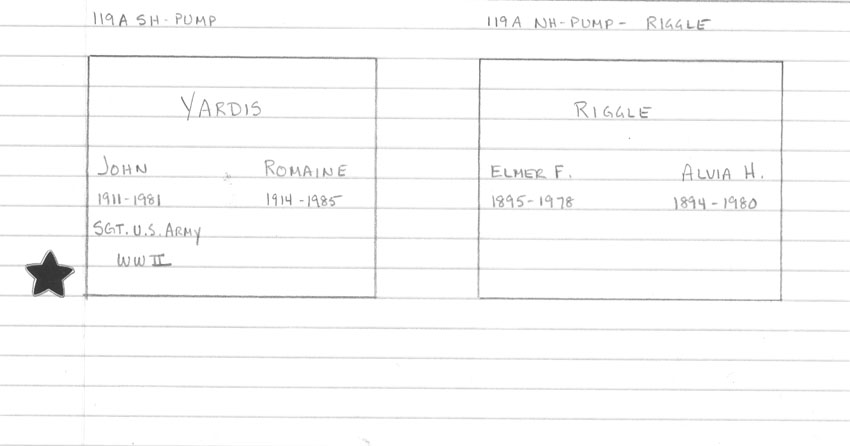 119A SH-PUMP
YARDIS
JOHN ROMAINE
1911-1981 1914-1985
SGT. U.S. ARMY
WW II
119A NH-PUMP- RIGGLE
RIGGLE
ELMER F. ALVIA H.
1895-1978 1894-1980